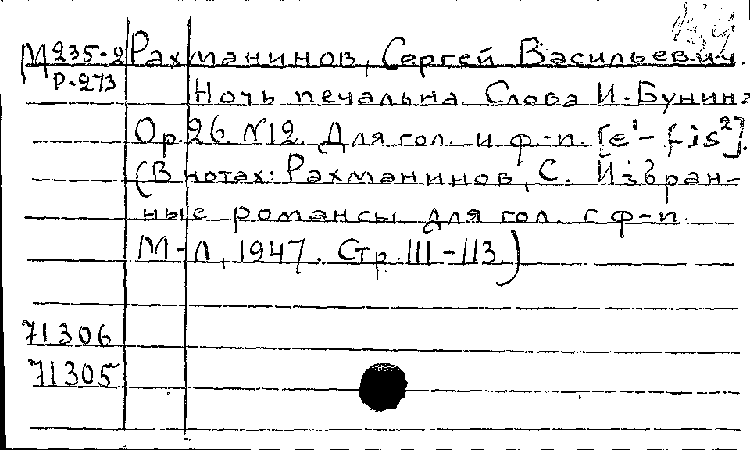 М235-2 Рахманинов, Сергей Васильевич.
Р-273
Ночь печальна Слова И. Бунина
Ор 26 N12. Для гол. и ф-п. [e¹-fis²].
(В нотах: Рахманинов, С. Избран-
ные романсы для гол. с ф-п.
М-Л, 1947. Стр. 111-113)
71306
71305